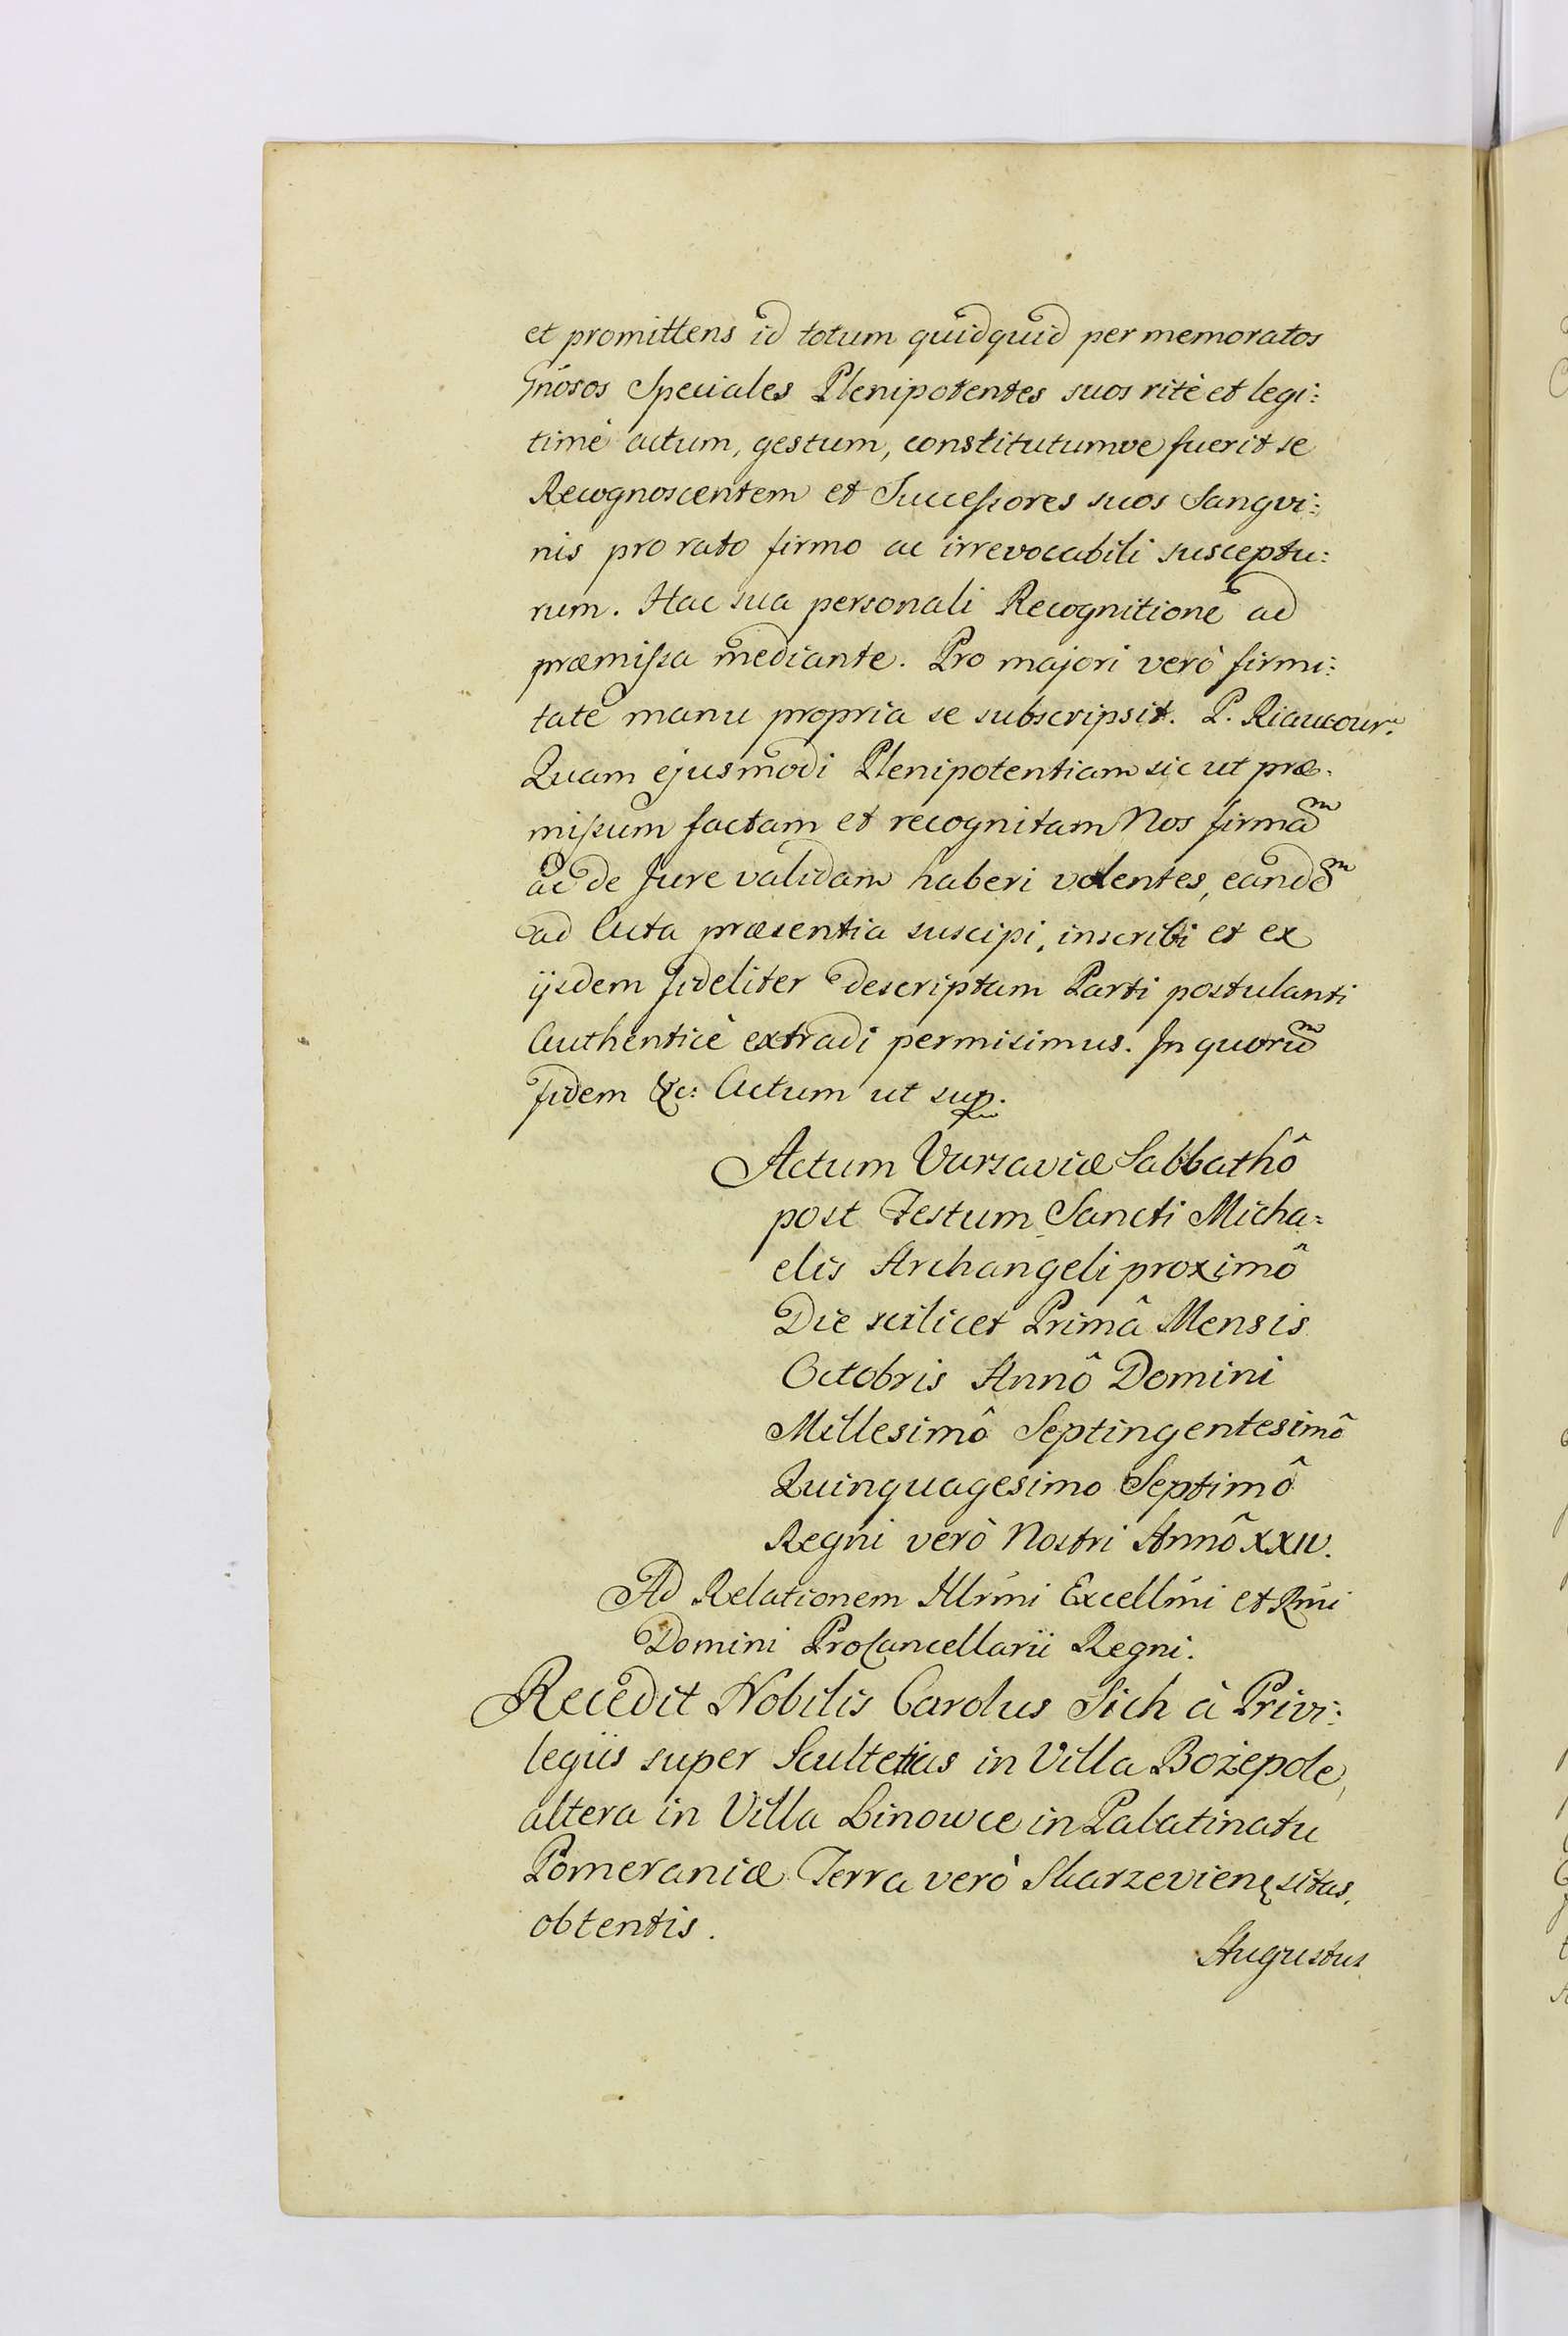 et promittens id totum quidquid per memoratos
Gnosos Speciales Plenipotentes suos ritè et legi:
timè actum, gestum, constitutumve fuerit se
Recognoscentem et Successores suos Sangvi:
nis pro rato firmo ac irrevocabili susceptu:
rum. Hac sua personali Recognitione ad
præmissa mediante. Pro majori verò firmi:
tate manu propria se subscripsit. P. Riaucour.
Quam ejusmodi Plenipotentiam sic ut præ.
missum factam et recognitam Nos firmam
ac de Jure validam haberi volentes, eandem
ad Acta præsentia suscipi, inscribi et ex
ijsdem fideliter descriptam Parti postulanti
Authenticè extradi permisimus. In quorum
fidem &c: Actum ut sup.
Actum Varsaviæ Sabbathô
post Festum Sancti Micha=
elis Archangeli proximô
Die scilicet Primâ Mensis
Octobris Annô Domini
Millesimô Septingentesimô
Quinquagesimo Septimô
Regni verò Nostri Annô XXIV.
Ad Relationem Illrmi Excellmi et Rmi
Domini ProCancellarii Regni.
Recedit Nobilis Carolus Sich à Privi:
legiis super Scultetias in Villa Bożepole,
altera in Villa Linowce in Palatinatu
Pomeraniæ Terra verò Skarzevien sitas.
obtentis.
Augustus